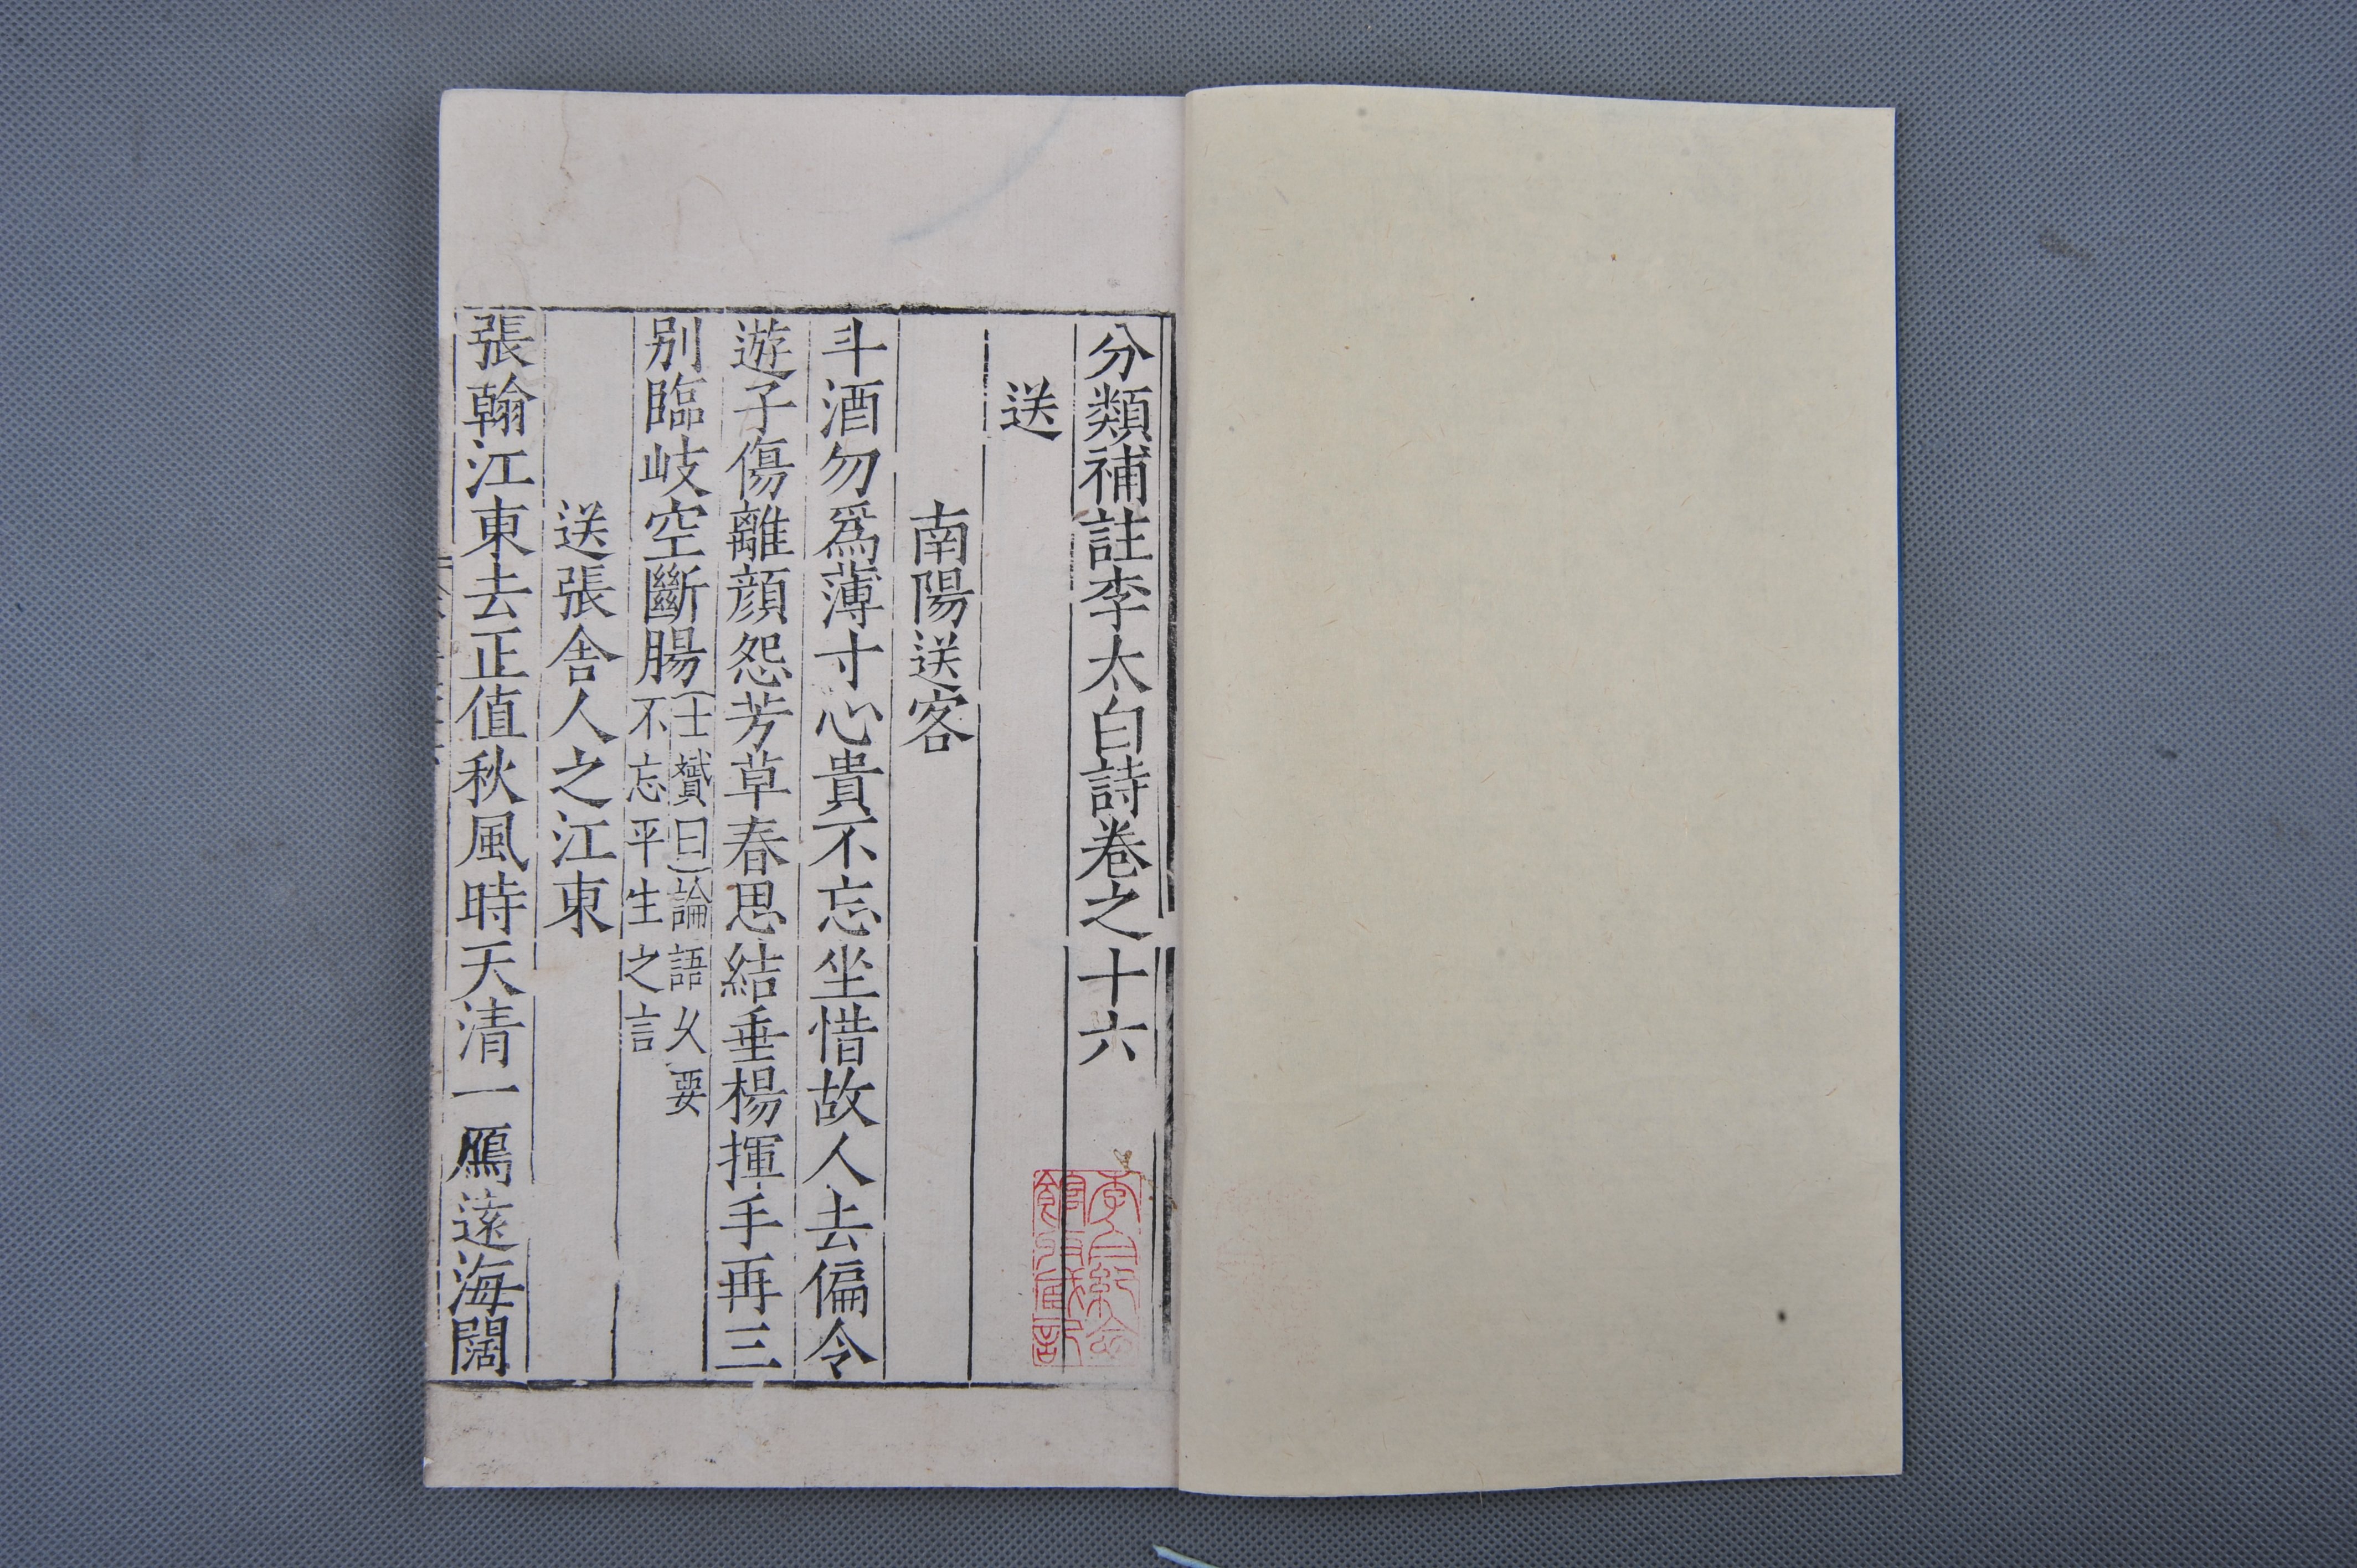 分類補註李太白詩卷之十六
送
南陽送客
斗酒勿爲薄寸心貴不忘坐惜故人去偏令
遊子傷離顔怨芳草春思結垂楊揮手再三
别臨岐空斷腸
士贇曰論語乆要
不忘平生之言
送張舍人之江東
張翰江東去正值秋風時天清一鴈逺海闊
李白紀念
館有藏記